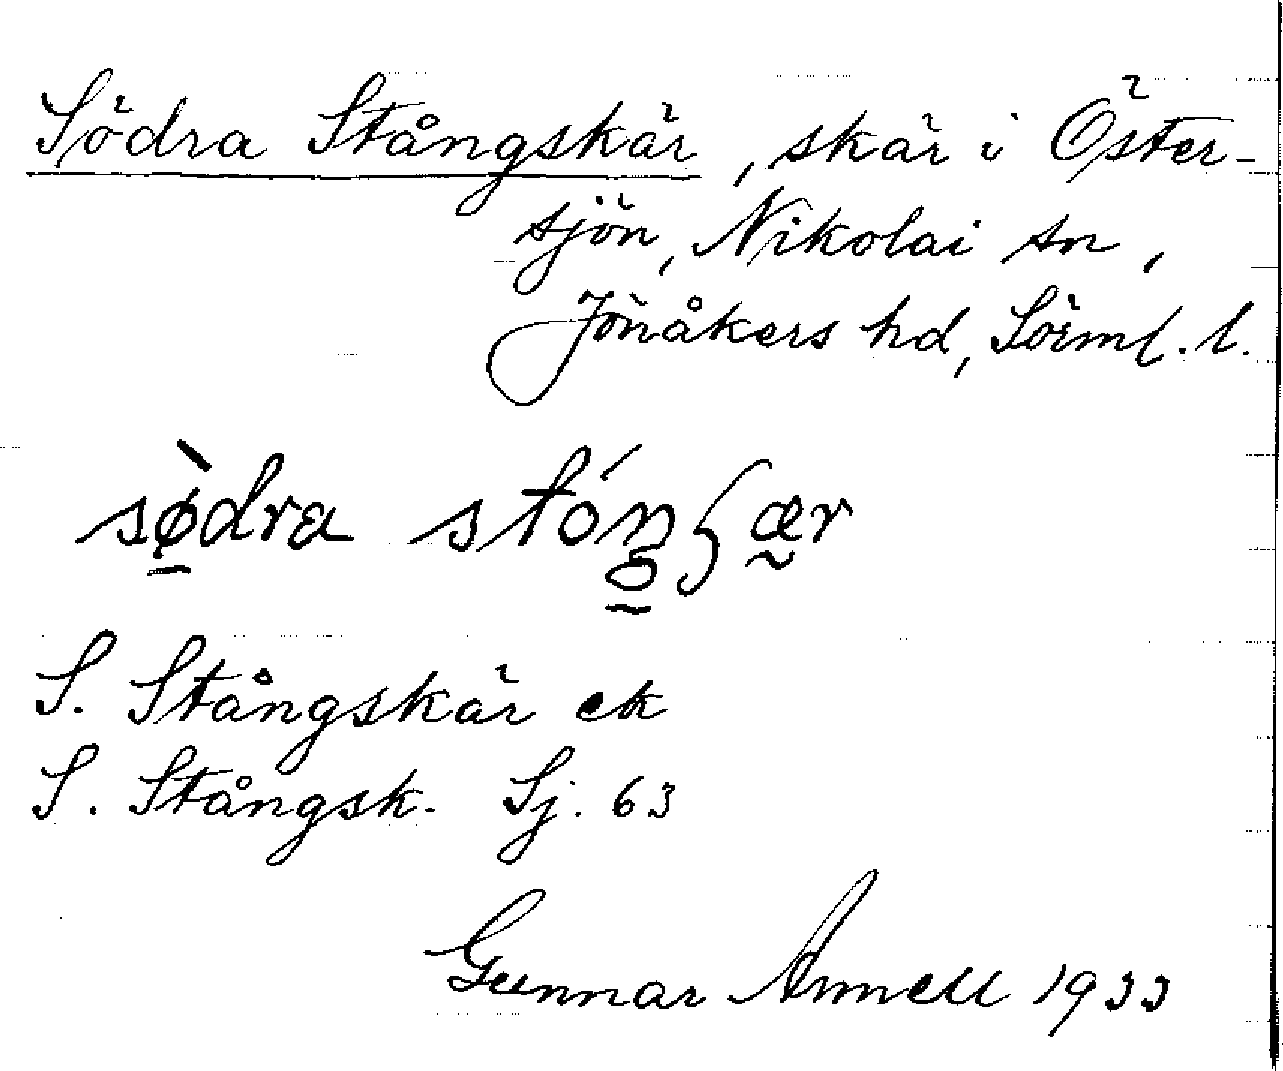 Södra Stångskär, skär i Öster-
sjön, Nikolai sn,
Jönåkers hd, Sörml. l.
södra
S. Stångskär ek
S. Stångsk. Sj. 63
Gunnar Annell 1933